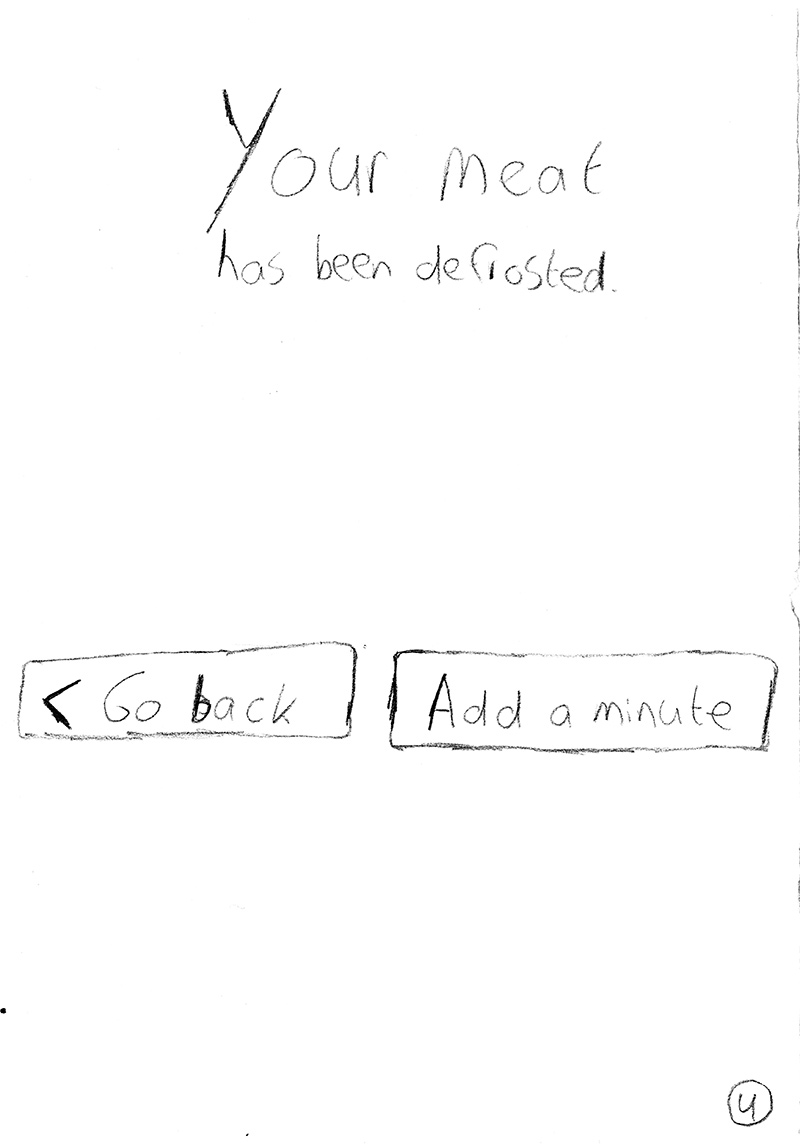 Your meat
has been defrosted.
< Go back
Add a minute
4